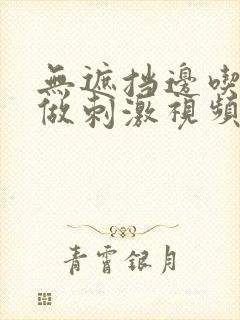 無遮挡邊喫
做刺激視頻
青霄銀月